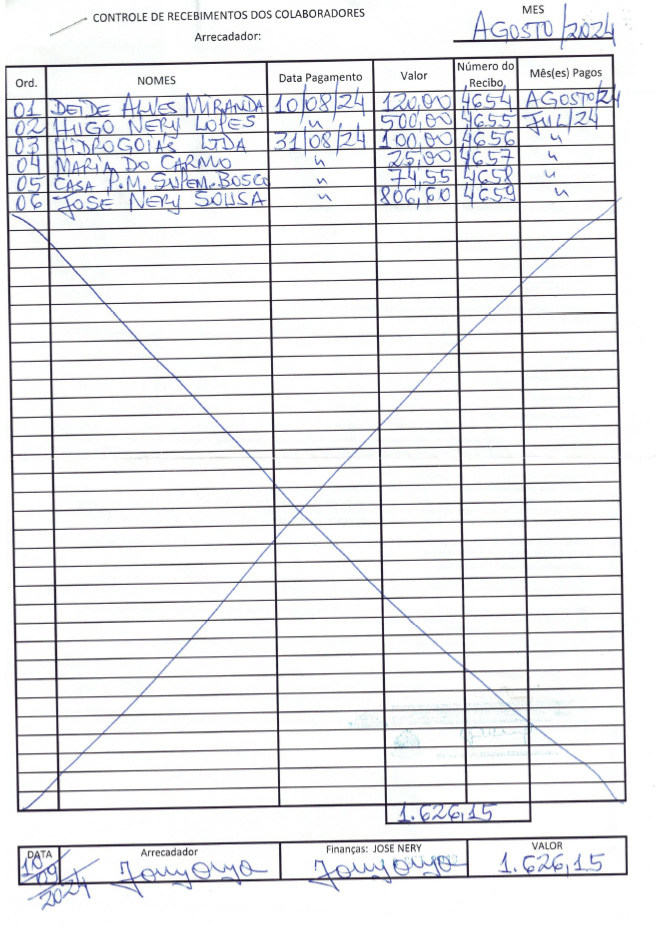 CONTROLE DE RECEBIMENTOS DOS COLABORADORES
MES
Arrecadador:
AGOSTO/2024
Ord. NOMES Data Pagamento Valor Número do Recibo Mês(es) Pagos
01 DEIDE ALVES MIRANDA 10/08/24 120,00 4654 AGOSTO/24
02 HUGO NERY LOPES " 500,00 4655 JUL/24
03 HIDROGOIÁS LTDA 31/08/24 100,00 4656 "
04 MARIA DO CARMO " 25,00 4657 "
05 CASA P.M. BOSCO " 74,55 4658 "
06 JOSE NERY SOUSA " 806,60 4659 "
1.626,15
DATA Arrecadador Finanças: JOSE NERY VALOR
10/09/2024 1.626,15